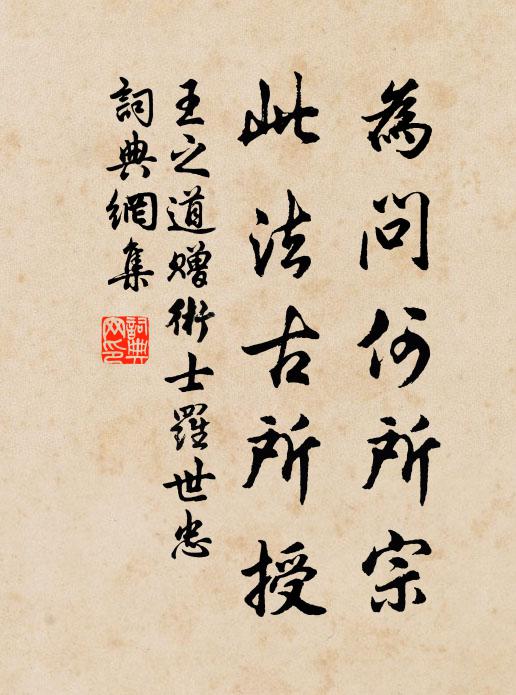 為問何所宗
此法古所授
王之道贈術士羅世忠
詞典網集
詞典網印